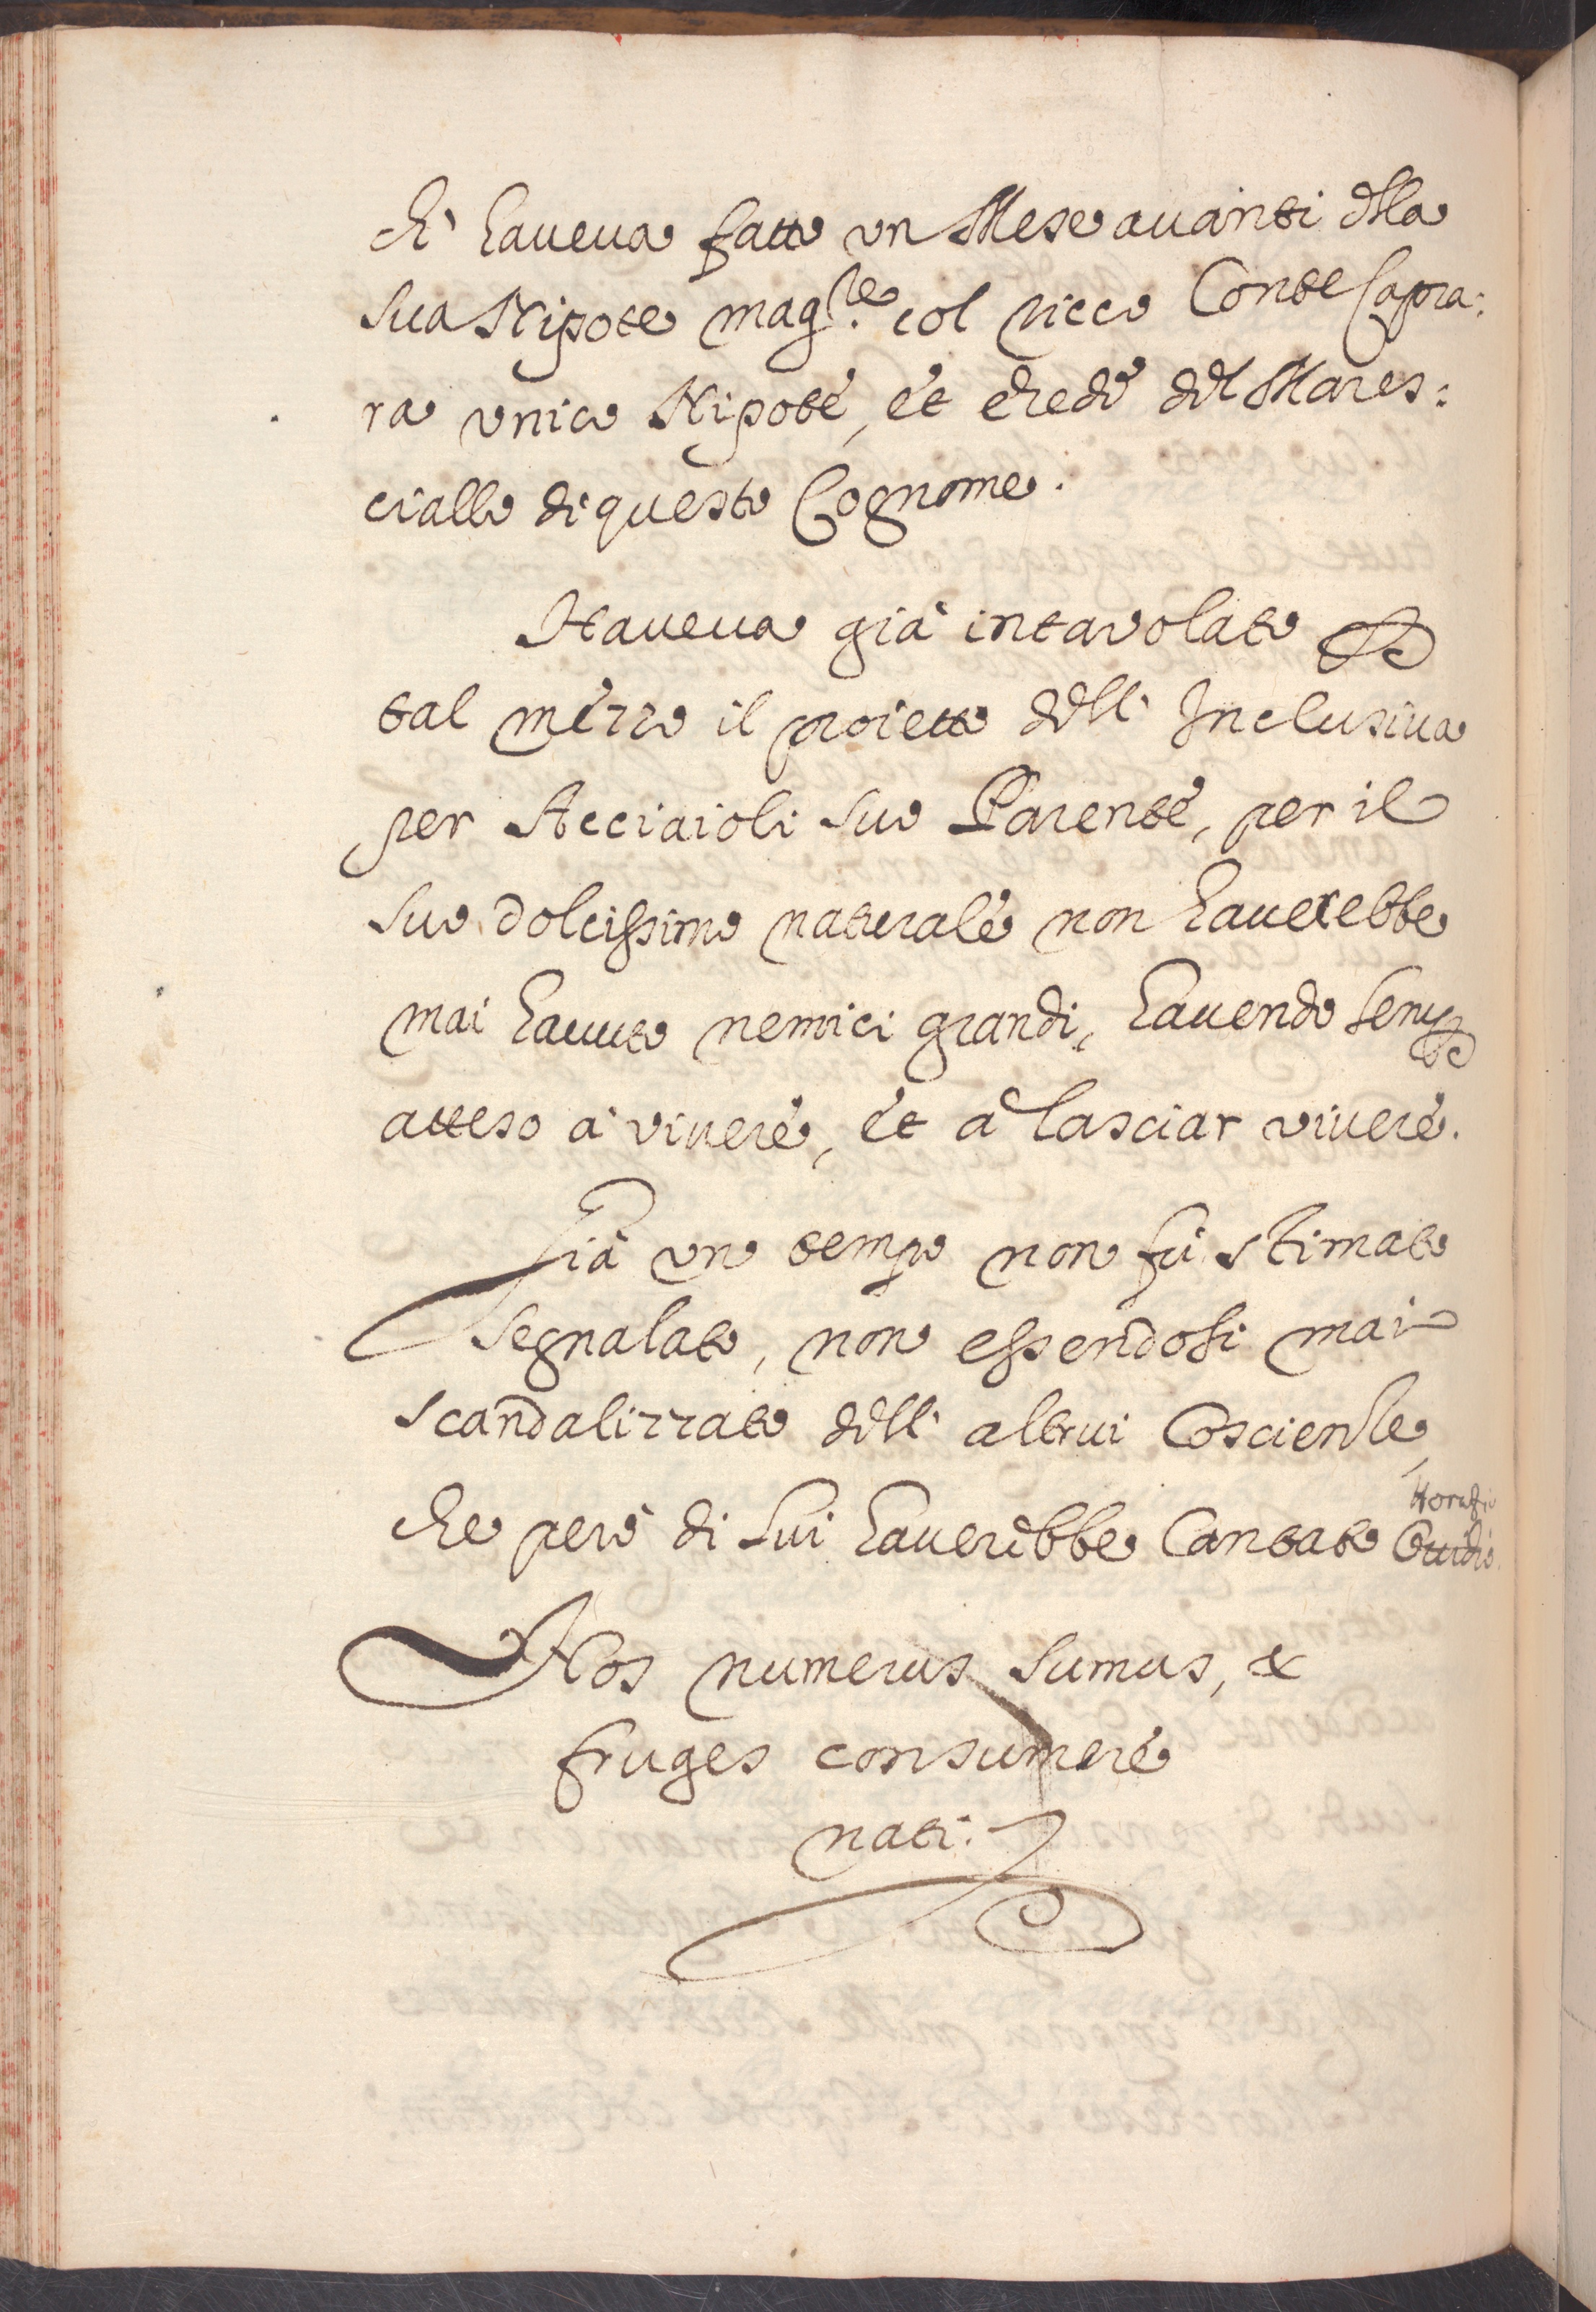 ch' haueua fatto un Mese auanti della
sua Nipote mag.re col ricco Conte Capra:
ra unico Nipote, et erede del Mares:
ciallo di questo Cognome.
Haueua già intauolato per
tal mezzo il proietto dell' Inclusiua
per Acciaioli suo Parente, per il
suo dolcissimo naturale non hauerebbe
mai hauuto nemici grandi, hauendo sempre
atteso a viuere, et a lasciar viuere.
Già un tempo non fù stimato
segnalato, non essendosi mai
scandalizzato dell' altrui Coscienze,
che però di lui hauerebbe Cantato Ouidio
Horatio
Nos numerus sumus, &
fruges consumere
nati.